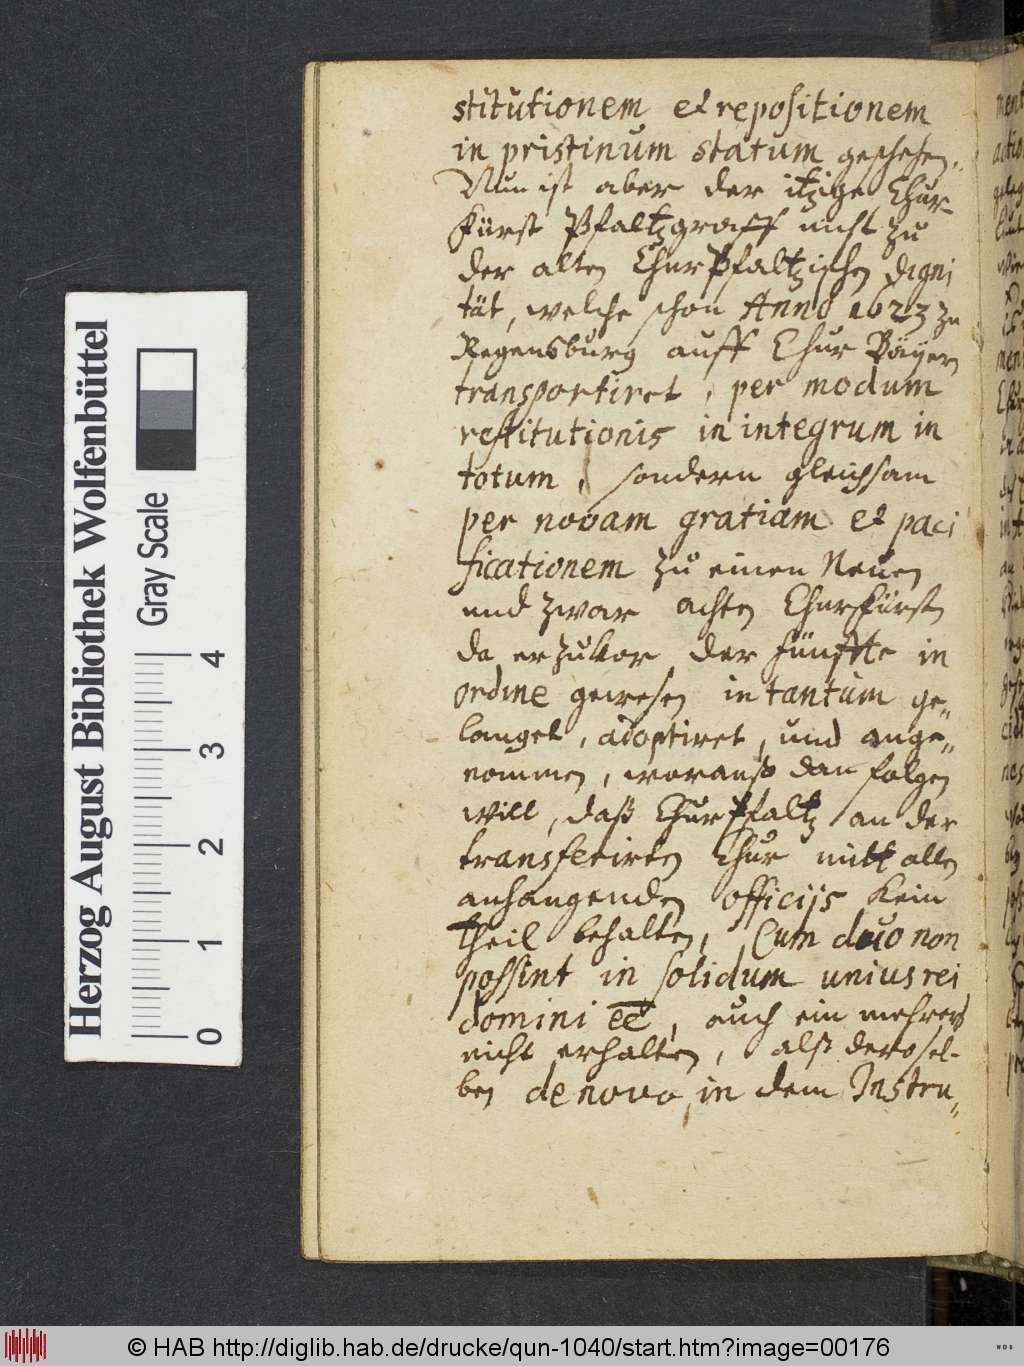 stitutionem et repositionem
in pristinum statum geschehen.
Nun ist aber der itzige Chur-
Fürst Pfaltzgraff nicht zu
der alten ChurPfaltzischen digni
tät, welche schon Anno 1623 zu
Regensburg auff Chur Bäyern
transportiret, per modum
restitutionis in integrum in
totum, sondern gleichsam
per novam gratiam et paci
ficationem zu einen Neuen
und zwar achten Churfürsten
da er zuvor der fünffte in
ordine gewesen in tantum ge„
langet, adoptiret, und ange„
nommen, worauß dan folgen
will, daß ChurPfaltz an der
transferirten Chur mitt allen
anhangenden officijs kein
theil behalten, Cum duo non
possint in solidum unius rei
domini ee, auch ein mehrers
nicht erhalten, alß derosel-
ben de novo, in dem Instru„
Herzog August Bibliothek Wolfenbüttel
Gray Scale
0 1 2 3 4
© HAB http://diglib.hab.de/drucke/qun-1040/start.htm?image=00176